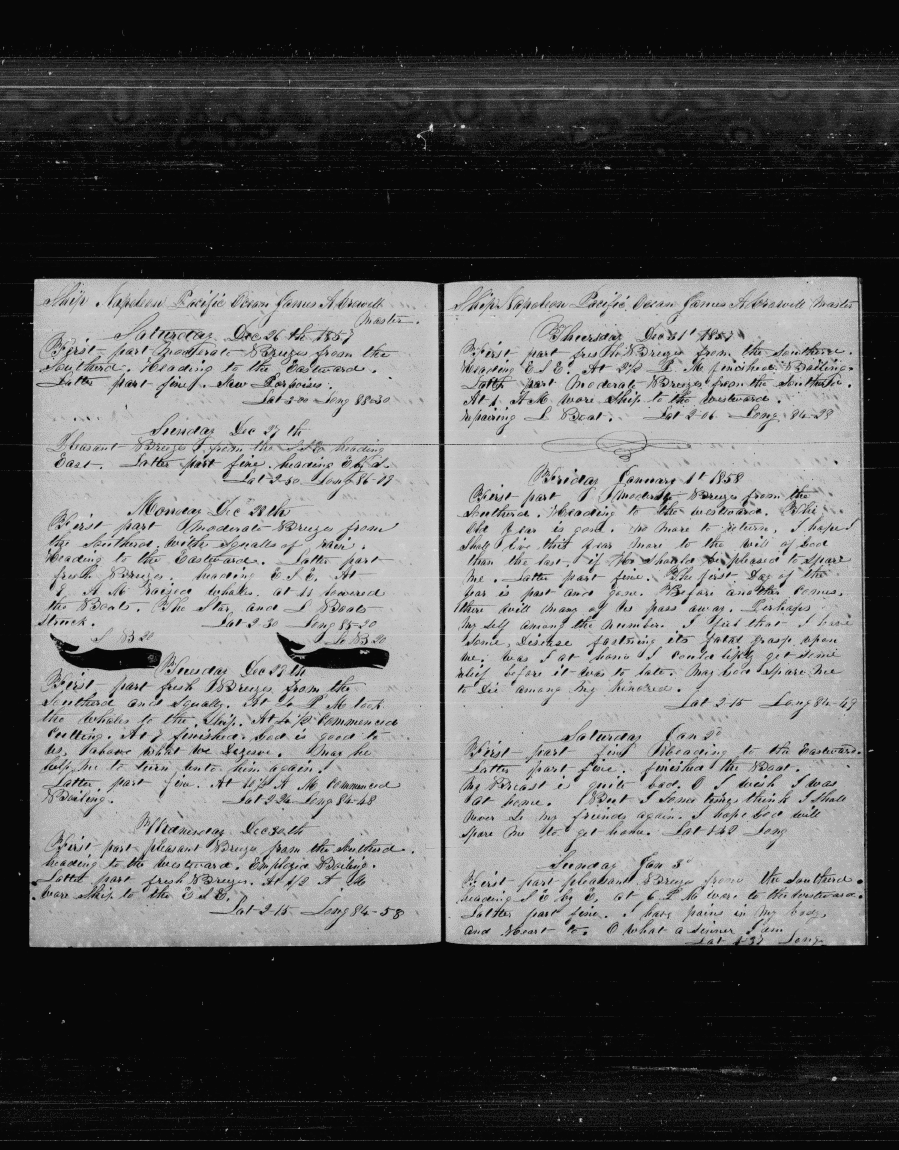 Ship Napoleon Pacific Ocean James A Crowell
Master
Saturday Dec 26th 1857
First part Moderate Breezes from the
Southerd. Heading to the Eastward.
Latter part fine. Saw Porpoises.
Lat 3-00 Long 88-30
Sunday Dec 27th
Pleasant Breezes from the heading
East. Latter part fine. heading E by S.
Lat 2-50 Long 86-09
Monday Dec 28th
First part Moderate Breezes from
the Southerd. with Squalls of rain.
Heading to the Eastward. Latter part
fresh Breezes. heading E S E. At
A M Raised whales. at 11 lowered
the Boats. The Star and L Boats
Struck. Lat 2-30 Long 85-20
S B 20 Lo B 20
Tuesday Dec 29th
First part fresh Breezes from the
Southerd and Squally. At P M took
the whales to the Ship. At 4 1/2 commenced
cutting. At 7 finished. God is good to
us, above what we Deserve. May he
help me to turn unto him again.
Latter part fine. At A M commenced
Boiling. Lat 2-24 Long 84-48
Wednesday Dec 30th
First part pleasant Breezes from the Southerd.
heading to the westward. Employed Boiling.
Latter part fresh Breezes. At 1/2 A M
ware Ship to the E S E.
Lat 2-15 Long 84-58
Ship Napoleon Pacific Ocean James A Crowell Master
Thursday Dec 31st 1857
First part fresh Breezes from the Southerd.
Heading E S E. At P M finished Boiling.
Latter part Moderate Breezes from the Southerd.
At A M wore Ship to the westward.
repairing L Boat. Lat 2-06 Long 84-28
Friday January 1st 1858
First part Moderate Breezes from the
Southerd. Heading to the westward. The
Old Year is gone. no more to return. I hope I
Shall live this year more to the will of God
than the last. if He should be pleased to Spare
me. Latter part fine. The first Day of the
year is past and gone. Before another comes.
there will many of us pass away. Perhaps
my self among the number. I fear that I have
some Disease fastning its fatal grasp upon
me. was I at home I could get some
relief before it was to late. May God spare me
to Die among my kindred.
Lat 2-15 Long 84-49
Saturday Jan 2d
First part fine Heading to the Eastward.
Latter part fine. finished the Boat.
My Breast is quite bad. O I wish I was
at home. But I some times think I Shall
never See my friends again. I hope God will
spare me to get home. Lat 1-42 Long
Sunday Jan 3d
First part pleasant Breezes from the Southerd.
heading S E by E. at 6 P M wore to the westward.
Latter part fine. I have pains in my body,
and Heart to. O what a Sinner I am
Lat 1-37 Long